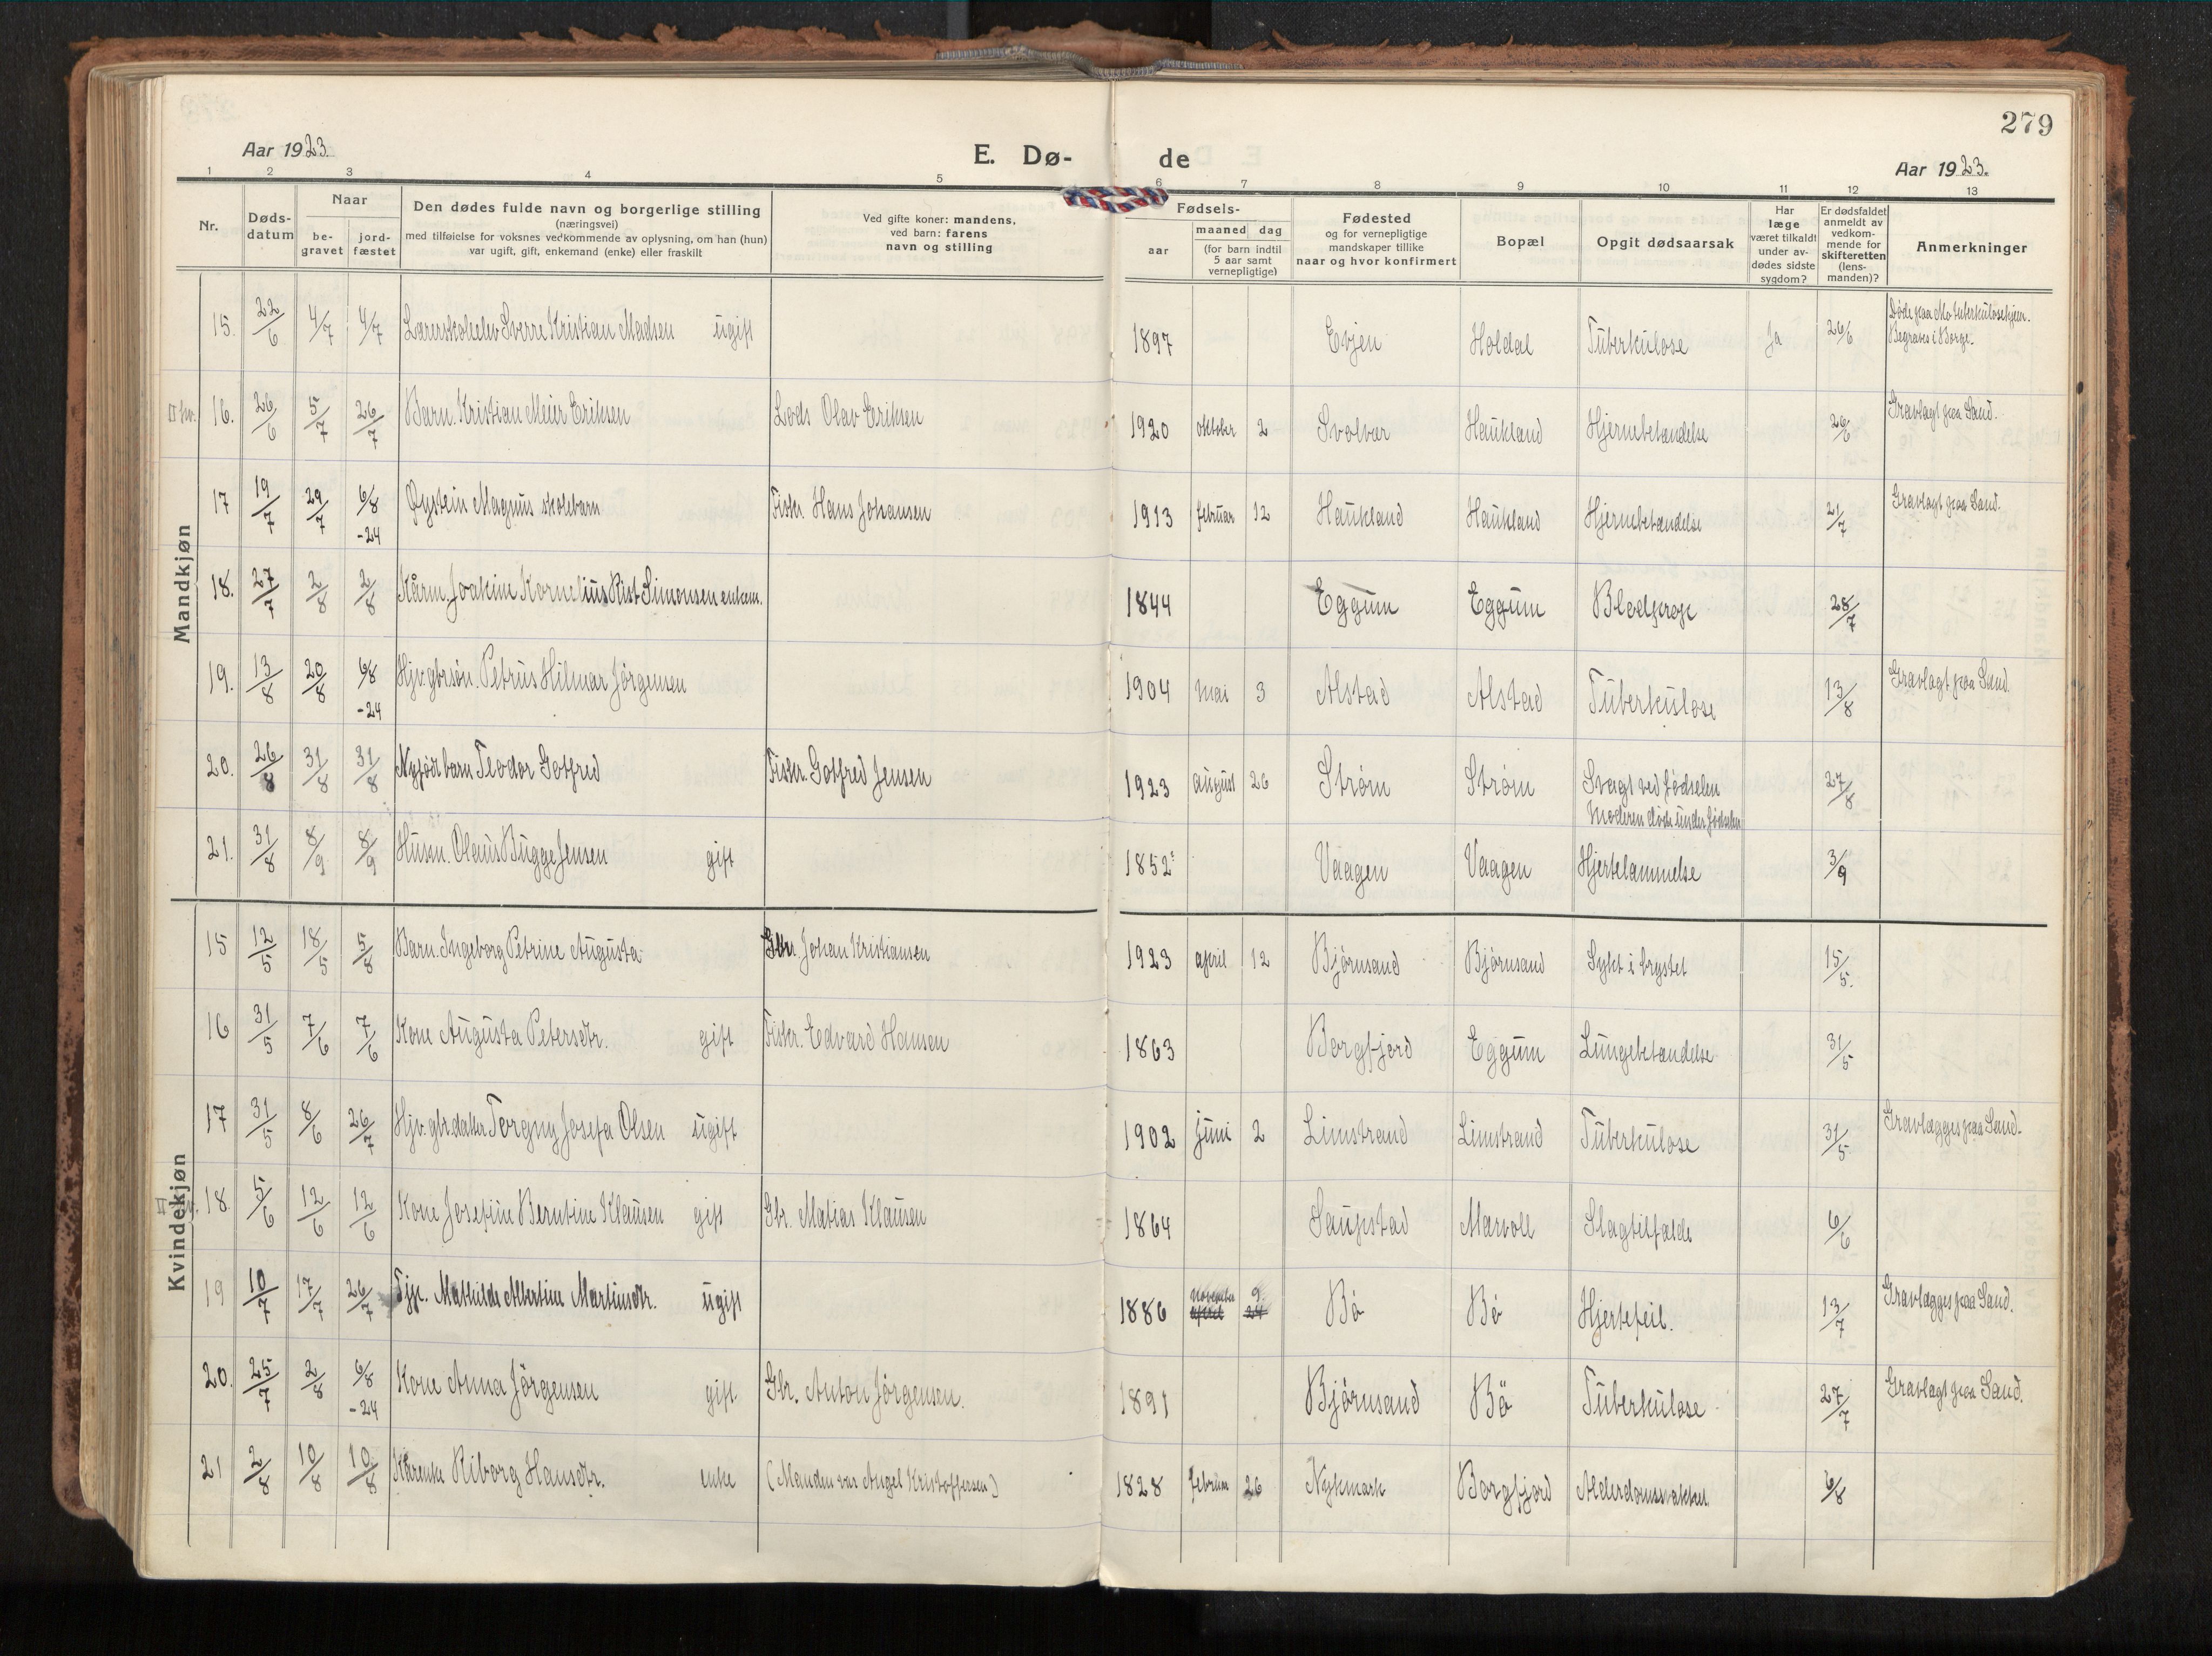 279
Aar 1923.
E. Dø-
de
Aar 1923.
1 2 3 4 5 6 7 8 9 10 11 12 13
Nr.
Døds-
datum
Naar
be-
gravet
jord-
fæstet
Den dødes fulde navn og borgerlige stilling
(næringsvei)
med tilføielse for voksnes vedkommende av oplysning, om han (hun)
var ugift, gift, enkemand (enke) eller fraskilt
Ved gifte koner: mandens,
ved barn: farens
navn og stilling
Fødsels-
aar
maaned dag
(for barn indtil
5 aar samt
vernepligtige)
Fødested
og for vernepligtige
mandskaper tillike
naar og hvor konfirmert
Bopæl
Opgit dødsaarsak
Har
læge
været tilkaldt
under av-
dødes sidste
sygdom?
Er dødsfaldet
anmeldt av
vedkom-
mende for
skifteretten
(lens-
manden)?
Anmerkninger
Mandkjøn
15. 22/6 4/7 4/7 Lærerskoleelev Sverre Kristian Madsen ugift 1897 Evjen Holdal Tuberkulose Ja 26/6 Døde paa Mo tuberkulosehjem.
Begraves i Borge.
16. 26/6 5/7 26/7 Barn. Kristian Meier Eriksen Lods Olav Eriksen 1920 oktober 2 Svolvær Haukland Hjernebetændelse 26/6 Gravlagt paa Sand.
17 19/7 29/7 6/8 Øystein Magnus skolebarn Fisker. Hans Johansen 1913 februar 12 Haukland Haukland Hjernebetændelse 21/7 Gravlagt paa Sand.
-24
18. 27/7 2/8 2/8 Kårm. Joakim Kornelius Rist Simonsen enkem. 1844 Eggum Eggum Blodprop 28/7
19. 13/8 20/8 6/8 Hjv. gbr.søn. Petrus Hilmar Jørgensen 1904 mai 3 Alstad Alstad Tuberkulose 13/8 Gravlagt paa Sand.
-24
20. 26/8 31/8 31/8 Nyfødt barn Teodor Gotfred Fisker. Gotfred Jensen 1923 august 26 Strøm Strøm Svagt ved fødselen 27/8
Moderen døde under fødselen
21. 31/8 8/9 8/9 Husm. Olaus Bugge Jensen gift 1852 Vaagen Vaagen Hjertelammelse 3/9
Kvindekjøn
15 12/5 18/5 5/8 Barn Ingeborg Petrine Augusta Gbr. Johan Kristiansen 1923 april 12 Bjørnsand Bjørnsand Sykt i brystet 15/5.
16 31/5 7/6 7/6 Kone Augusta Petersdtr. gift Fisker. Edvard Hansen 1863 Borgfjord Eggum Lungebetændelse 31/5
17 31/5 8/6 26/7 Hjv. gbr.datter Torgny Josefa Olsen ugift 1902 juni 2 Limstrand Limstrand Tuberkulose 31/5 Gravlægges paa Sand.
18 5/6 12/6 12/6 Kone Josefine Berntine Klausen gift Gbr. Matias Klausen 1864 Saupstad Marvoll Slagtilfælde 6/6
19 10/7 17/7 26/7 Tjp. Mathilde Albertine Martinsdtr. ugift 1886 november 9 Bø Bø Hjertefeil. 13/7 Gravlægges paa Sand.
april 24
20. 25/7 2/8 6/8 Kone Anna Jørgensen gift Gbr. Anton Jørgensen. 1891 Bjørnsand Bø Tuberkulose 27/7 Gravlagt paa Sand.
-24
21 2/8 10/8 10/8 Kårenke Riborg Hansdtr. enke (Manden var Angel Kristoffersen) 1828 februar 26 Nykmark Borgfjord Alderdomssvakhet 6/8